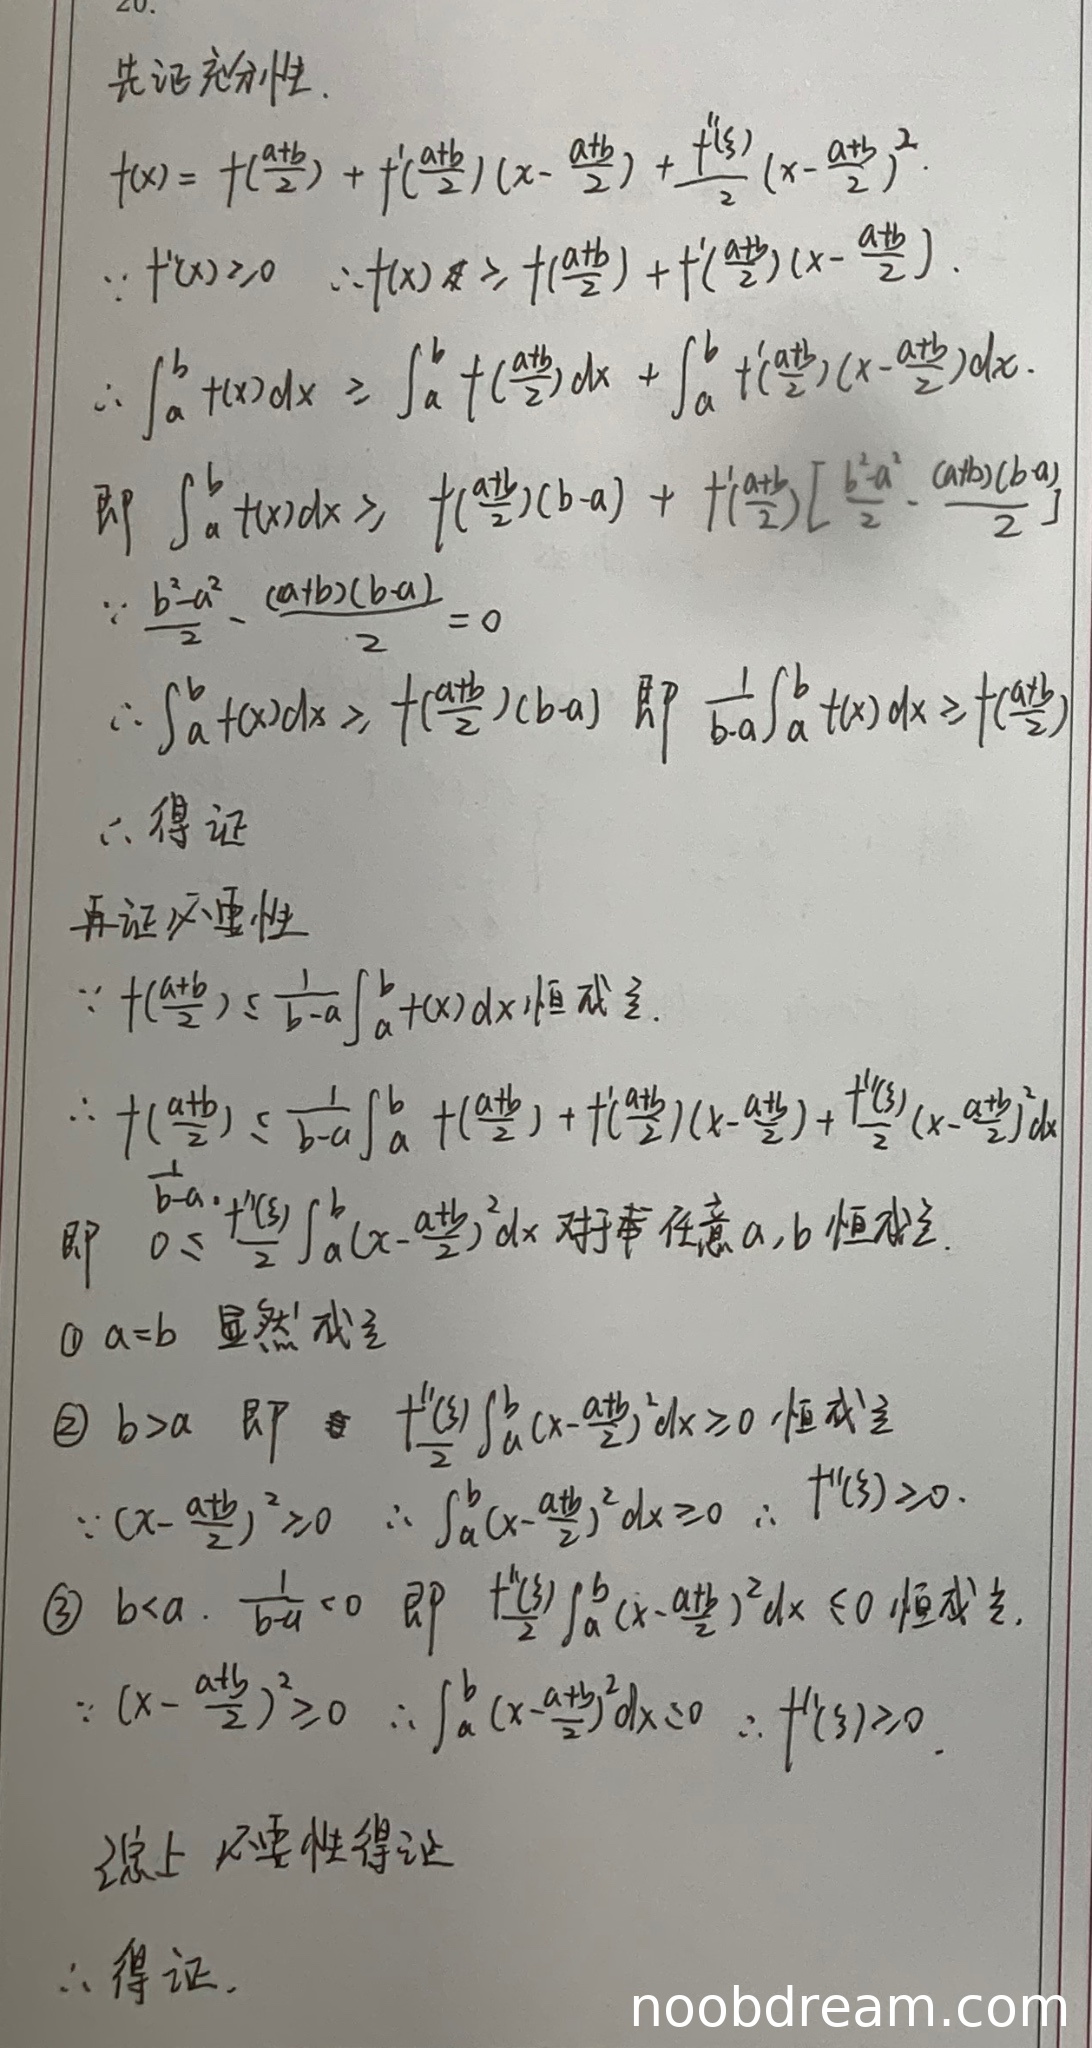 20.
先证充分性.
f(x) = f(a+b/2) + f'(a+b/2)(x - a+b/2) + f''(ξ)/2 (x - a+b/2)².
∵ f''(x) ≥ 0 ∴ f(x) ≥ f(a+b/2) + f'(a+b/2)(x - a+b/2).
∴ ∫_a^b f(x)dx ≥ ∫_a^b f(a+b/2)dx + ∫_a^b f'(a+b/2)(x - a+b/2)dx.
即 ∫_a^b f(x)dx ≥ f(a+b/2)(b-a) + f'(a+b/2)[b²-a²/2 - (a+b)(b-a)/2]
∵ b²-a²/2 - (a+b)(b-a)/2 = 0
∴ ∫_a^b f(x)dx ≥ f(a+b/2)(b-a) 即 1/b-a ∫_a^b f(x)dx ≥ f(a+b/2)
∴ 得证
再证必要性
∵ f(a+b/2) ≤ 1/b-a ∫_a^b f(x)dx 恒成立.
∴ f(a+b/2) ≤ 1/b-a ∫_a^b f(a+b/2) + f'(a+b/2)(x - a+b/2) + f''(ξ)/2 (x - a+b/2)² dx
即 0 ≤ 1/b-a · f''(ξ)/2 ∫_a^b (x - a+b/2)² dx 对于任意 a, b 恒成立.
① a=b 显然成立
② b>a 即 f''(ξ)/2 ∫_a^b (x - a+b/2)² dx ≥ 0 恒成立
∵ (x - a+b/2)² ≥ 0 ∴ ∫_a^b (x - a+b/2)² dx ≥ 0 ∴ f''(ξ) ≥ 0.
③ b<a. 1/b-a < 0 即 f''(ξ)/2 ∫_a^b (x - a+b/2)² dx ≤ 0 恒成立.
∵ (x - a+b/2)² ≥ 0 ∴ ∫_a^b (x - a+b/2)² dx ≤ 0 ∴ f''(ξ) ≥ 0.
综上 必要性得证
∴ 得证.
noobdream.com